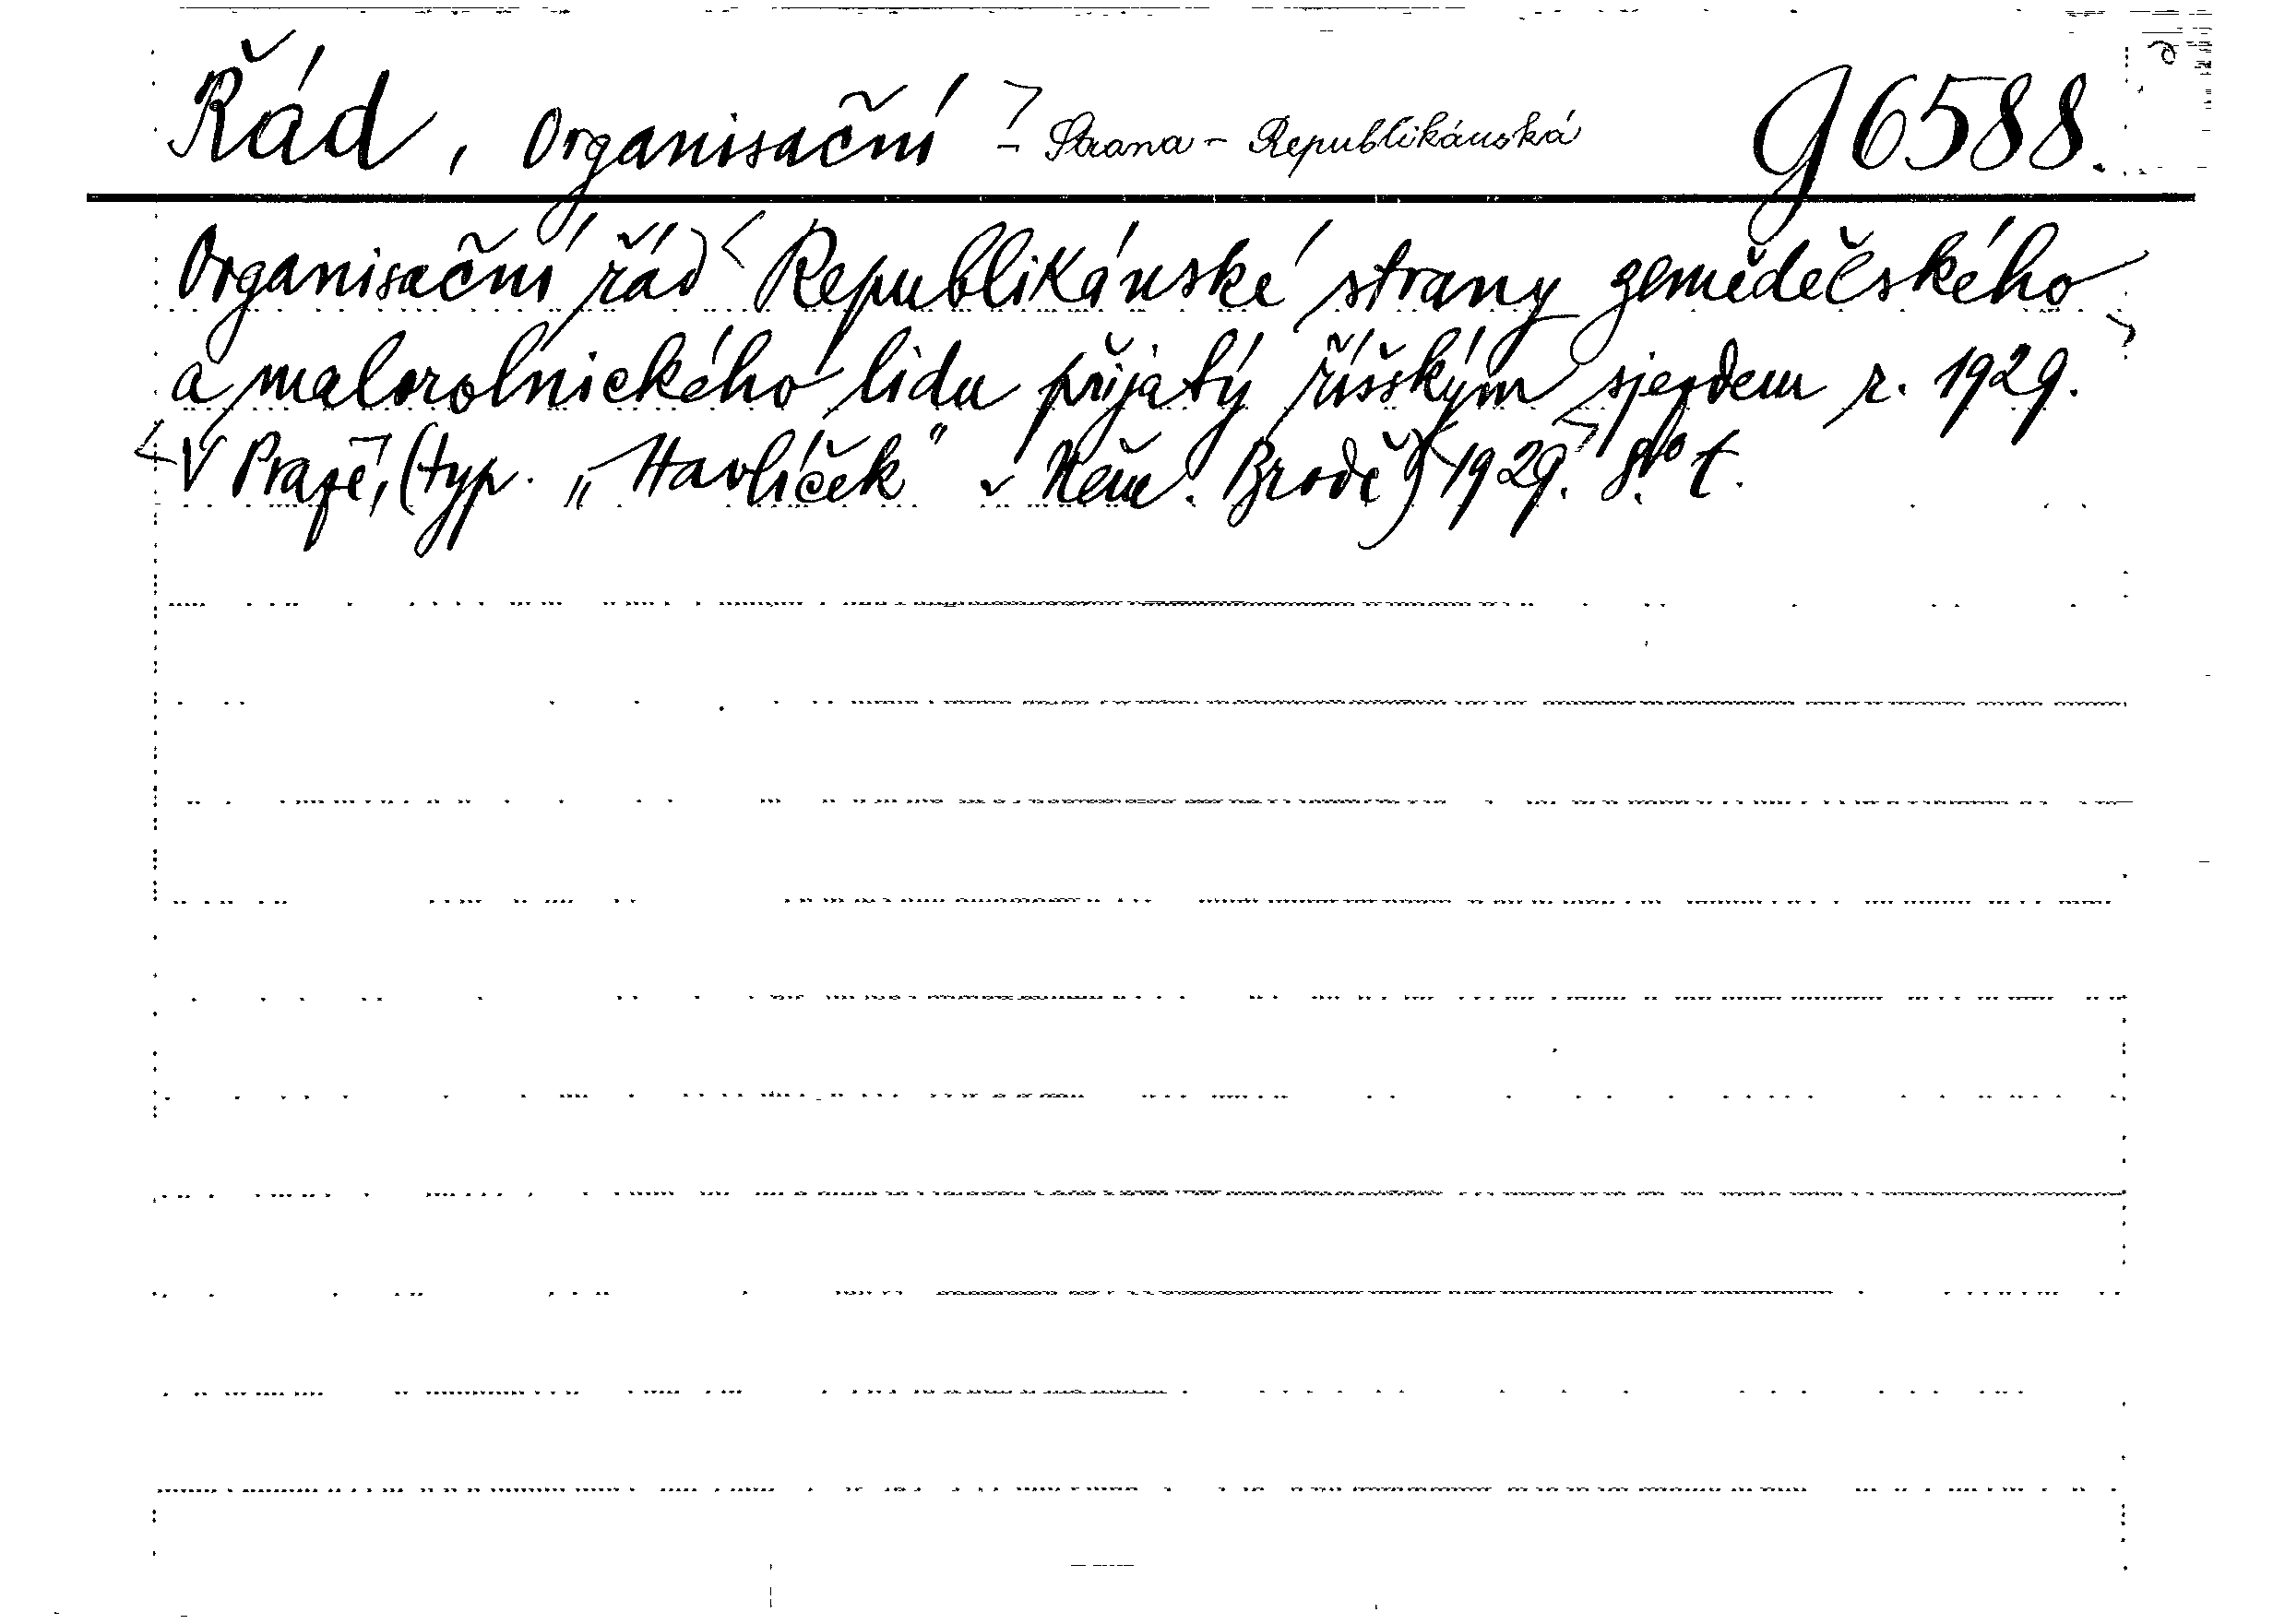 Řád, organisační - Strana - Republikánská G 6588.
Organisační řád Republikánské strany zemědělského
a malorolnického lidu přijatý říšským sjezdem r. 1929.
V Praze, (typ. „Havlíček" v Něm. Brodě) 1929. 8° t.